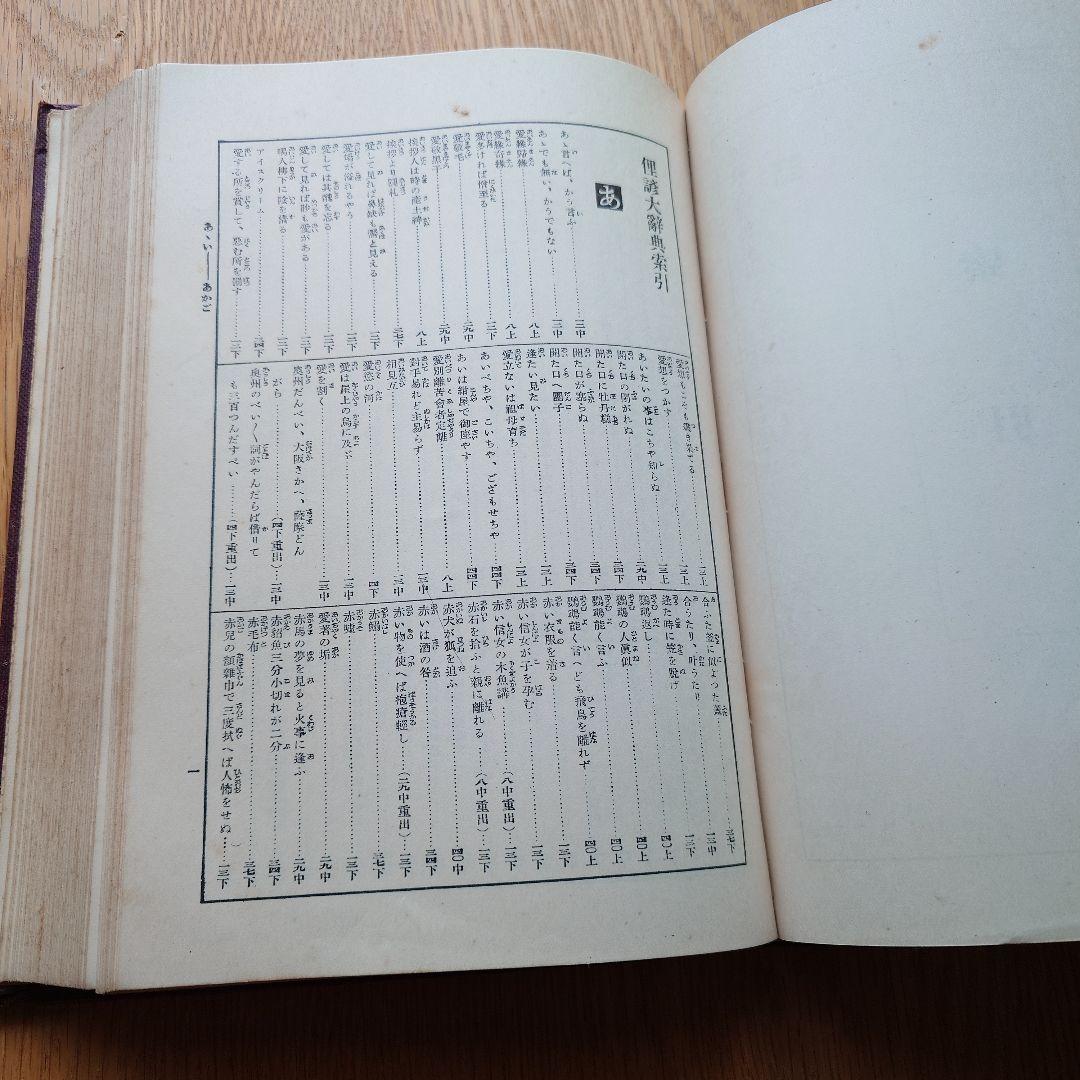 俚諺大辭典索引
あ
あゝ言へば、かう言ふ…三中
あゝでも無い、かうでもない…三中
愛緣奇緣…八上
愛多ければ憎至る…三下
愛敬毛…二九中
愛敬黒子…二九中
挨拶人は時の産土神…八上
挨拶より圓札…三七下
愛して見れば鼻缺も靨と見える…一三下
愛嬌が溢れるやう…一三下
愛しては其醜を忘る…一三下
愛して見れば紗も愛がある…一三下
鳴人梅下に陰を清る…一三下
アイスクリーム…一四下
愛する所を賞して、惡む所を罰す…一三下
愛想もこそも盡き果てる…一三上
愛想をつかす…一三上
あいたいの事はこちや知らぬ…一三上
開た口の閉がれぬ…二九中
開た口に牡丹餅…三四下
開た口が塞らぬ…三四下
開た口へ團子…三四下
逢たい見たい…一三上
愛立ないは祖母育ち…一三上
あいべちや、こいちや、ござもせちや…四四下
あいは紺屋で御座やす…四四下
愛別離苦會者定離…八上
對手易れど主易らず…一三中
相見互…一三中
愛慾の河…四下
愛は屋上の烏に及ぶ…一三中
愛を割く…一三中
奥州だんべい、大阪さかへ、薩摩どん
がら…（四下重出）一三中
奥州のべい〱詞がやんだらば借りて
も三百つんだすべい…（四下重出）一三中
合ふた釜に似よつた蓋…三七下
合うたり、叶うたり…一三中
逢た時に笠を脱げ…一三下
鸚鵡返し…四〇上
鸚鵡の人眞似…四〇上
鸚鵡能く言ふ…四〇上
鸚鵡能く言へども飛鳥を離れず…四〇上
赤い衣服を着る…一三下
赤い信女が子を孕む…一三下
赤い信女の木魚講…（八中重出）一三下
赤石を拾ふと親に離れる…（八中重出）一三下
赤犬が狐を追ふ…四〇中
赤いは酒の咎…三四下
赤い物を使へば疱瘡輕し…（二九中重出）一三下
赤鰯…三七下
赤噓…一三下
愛著の垢…二九中
赤馬の夢を見ると火事に逢ふ…二九中
赤貂魚三分小切れが二分…三四下
赤毛布…三七下
赤兒の額雜巾で三度拭へば人怖をせぬ…一三下
あゝい——あかご
一